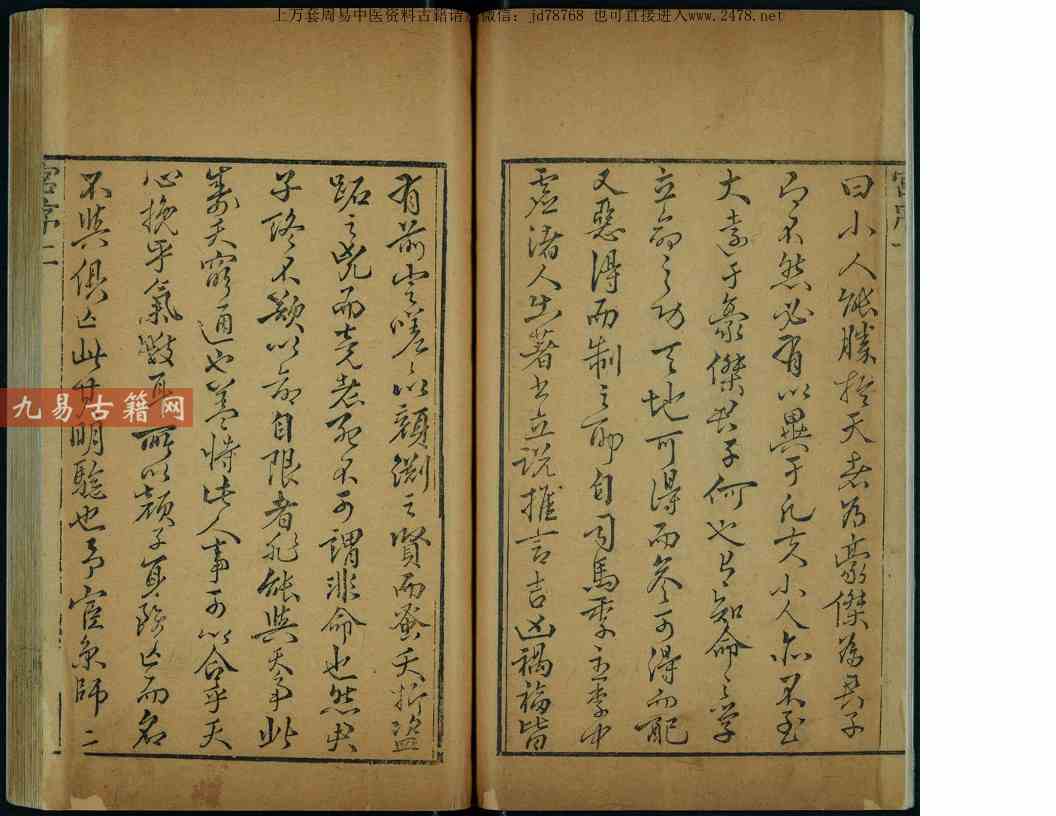 上万套周易中医资料古籍请 微信：jd78768 也可直接进入www.2478.net
曰小人能勝於天者為豪傑為君子
乃不然必有以異于凡夫小人亦不至
大遠于豪傑君子何也曰知命之學
立命之功天地可得而參可得而配
又惡得而制之耶自司馬季主李中
虛諸人出著書立說推言吉凶禍福皆
有前定嗟以顏淵之賢而蚤夭折盜
跖之兇而竟老死不可謂非命也然君
子終不數以命自限者非能與天爭此
壽夭窮通也蓋恃此人事可以合乎天
心挽乎氣數耳所以顏子身雖亡而名
不與俱亡此其明驗也予宦京師二
九易古籍网